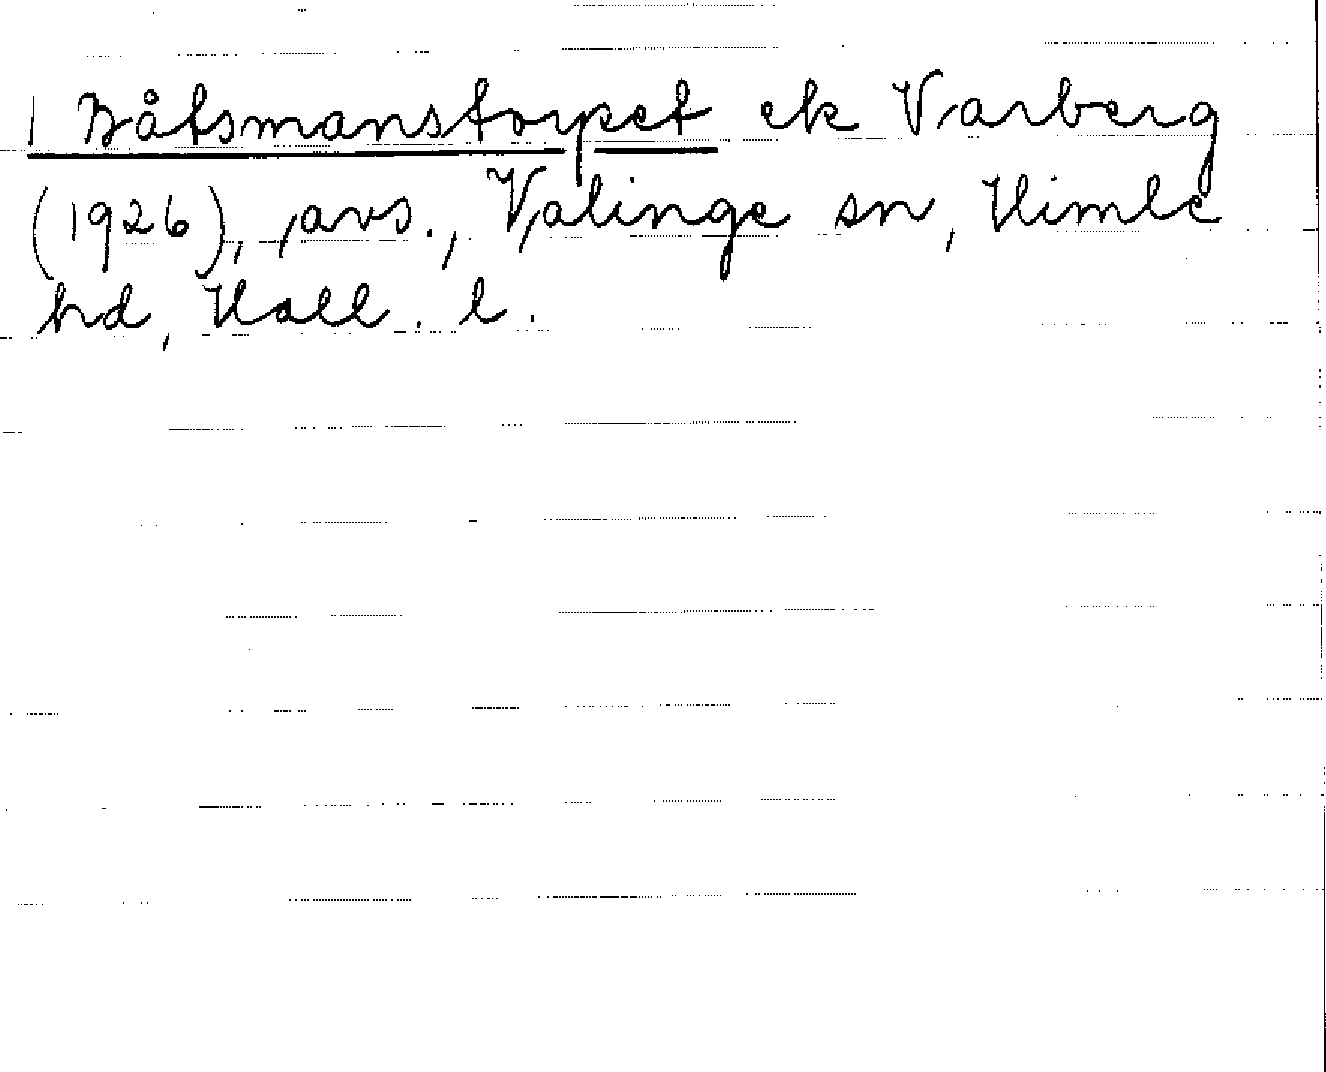 1 Båtsmanstorpet ek Varberg
(1926), avs., Valinge sn, Himle
hd, Hall. l.